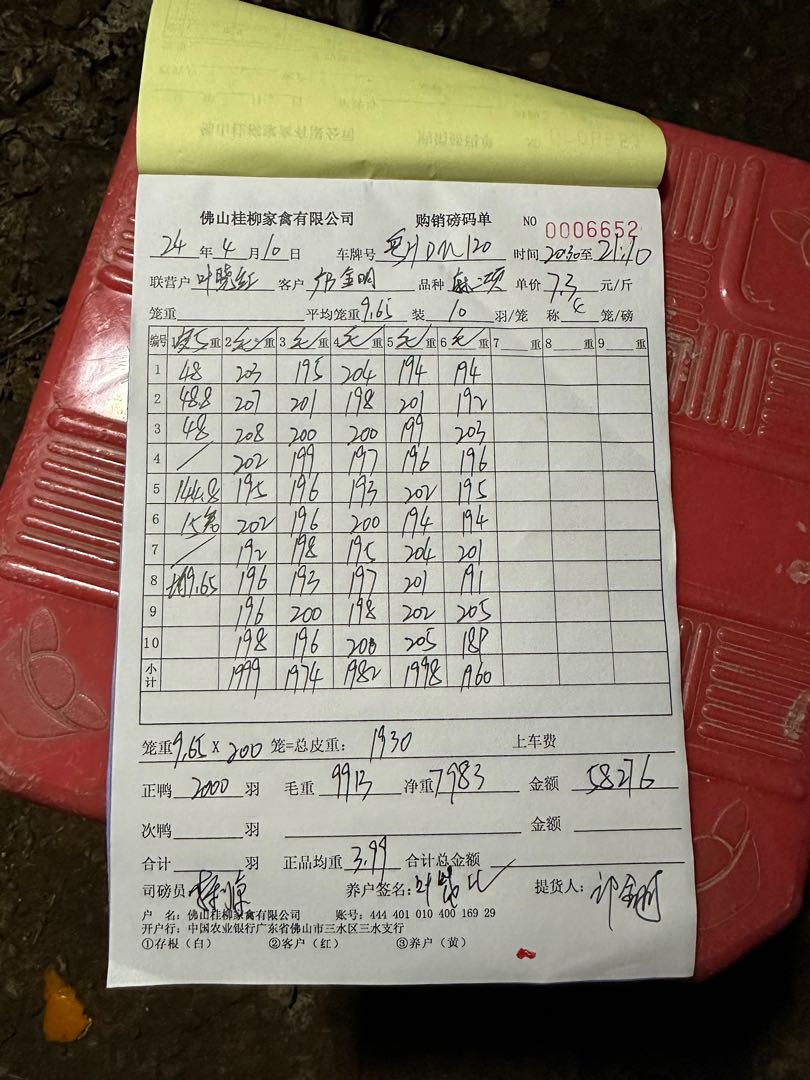 佛山桂柳家禽有限公司 购销磅码单 NO 0006652
24 年 4 月 10 日 车牌号 粤 DM120 时间 2030 至 21:10
联营户 叶晓红 客户 邝金明 品种 麻二项 单价 7.3 元/斤
笼重 平均笼重 9.65 装 10 羽/笼 称 4 笼/磅
编号 皮5重 2毛重 3毛重 4毛重 5毛重 6毛重 7重 8重 9重
1 48 203 195 204 194 194
2 48.8 207 201 198 201 192
3 48 208 200 200 199 203
4 / 202 199 197 196 196
5 144.8 195 196 193 202 195
6 15笼 202 196 200 194 194
7 / 192 198 195 204 201
8 均9.65 196 193 197 201 191
9 196 200 198 202 205
10 198 196 200 205 189
小计 1999 1974 1982 1998 1960
笼重 9.65 X 200 笼=总皮重: 1930 上车费
正鸭 2000 羽 毛重 9913 净重 7983 金额 58276
次鸭 羽 金额
合计 羽 正品均重 3.99 合计总金额
司磅员 养户签名: 提货人: 邝金明
户 名: 佛山桂柳家禽有限公司 账号: 444 401 010 400 169 29
开户行: 中国农业银行广东省佛山市三水区三水支行
①存根(白) ②客户(红) ③养户(黄)